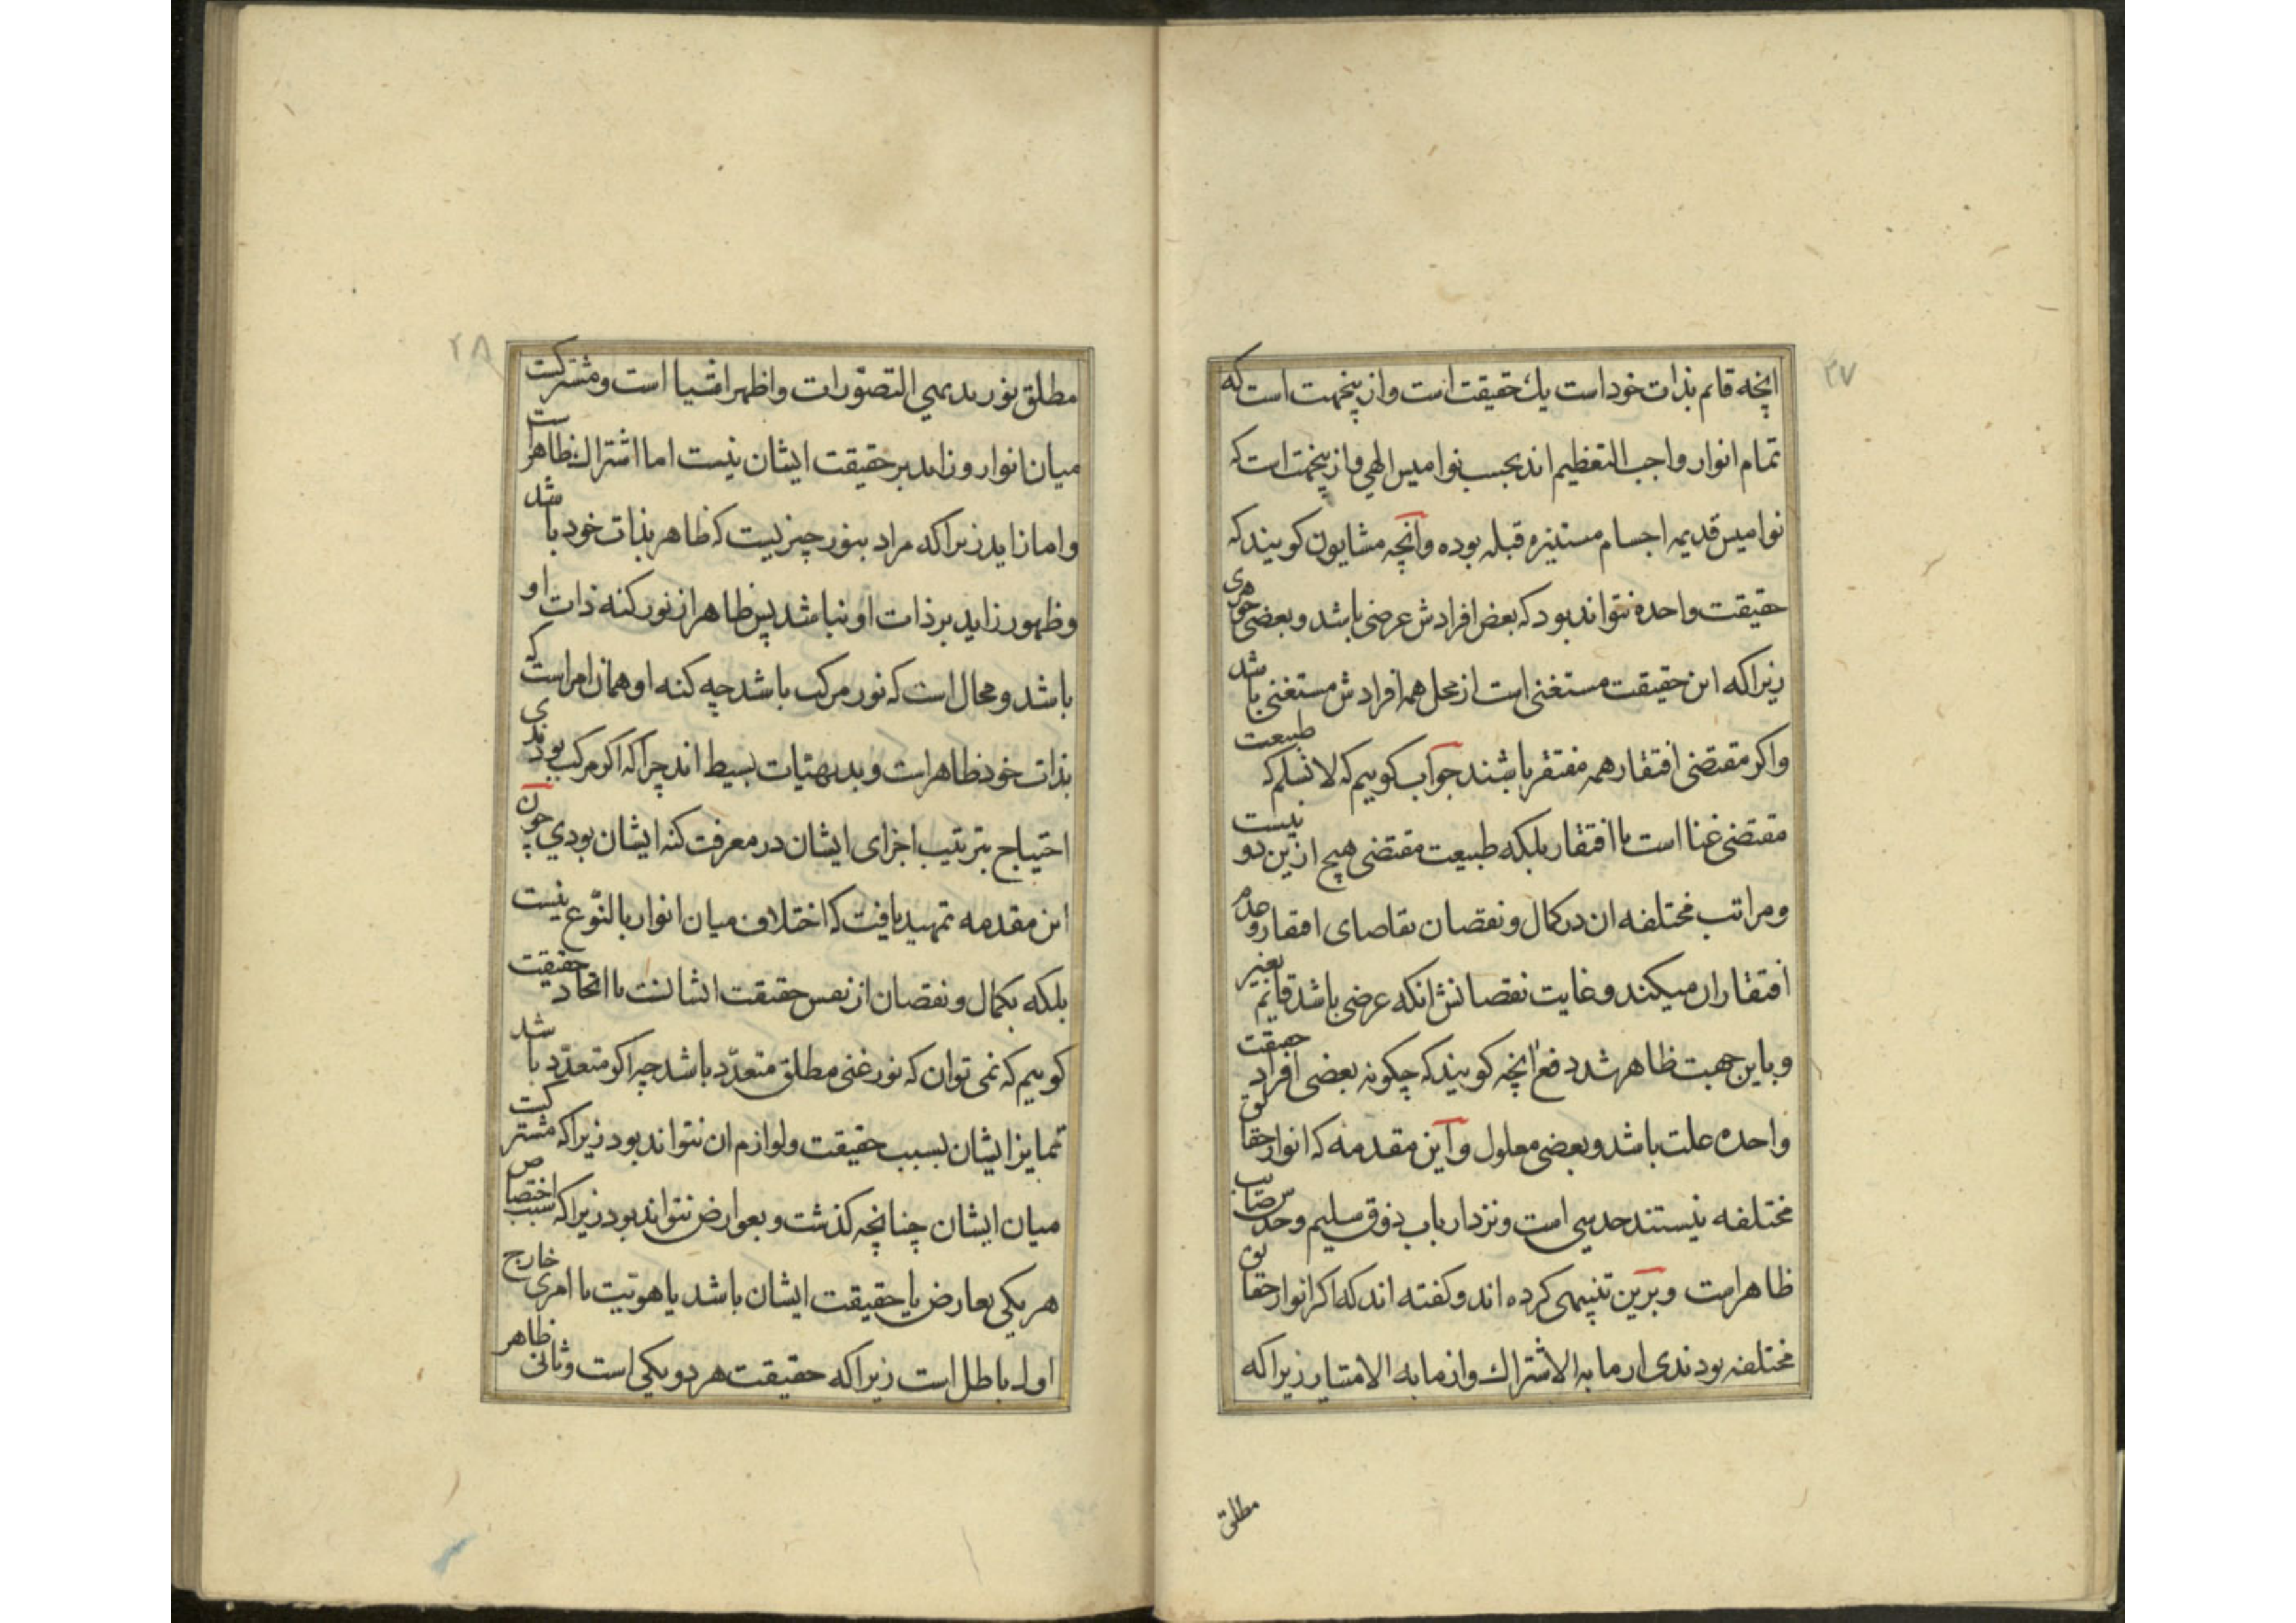 ۲۷
انچه قائم بذات خود است یك حقیقت است و از ینجهت است که
تمام انوار واجب التعظیم اند بحسب نوامیس الهی و از ینجهت است که
نوامیس قدیمه اجسام مستنیره قبله بوده و آنچه مشایون کویند که
حقیقت واحده نتواند بود که بعض افرادش عرضی باشد و بعضی جوهری
زیرا که این حقیقت مستغنی است از محل همه افرادش مستغنی باشد
واکر مقتضی افتقار همه مفتقر باشند جواب کوییم که لا نسلم که طبیعت
مقتضی غنا است یا افتقار بلکه طبیعت مقتضی هیچ ازین دو نیست
و مراتب مختلفه ان در کمال و نقصان تقاضای افتقار و عدم
افتقار ان میکند و غایت نقصانش انکه عرضی باشد قایم بغیر
و باین جهت ظاهر شد دفع انچه کویند که چکونه بعضی افراد حقیقت
واحده علت باشد و بعضی معلول و این مقدمه که انوار حقایق
مختلفه نیستند حدسی است و نزد ارباب ذوق سلیم و حدس صایب
ظاهر است و برین تنبیهی کرده اند و کفته اند که اکر انوار حقایق
مختلفه بودندی از ما به الاشتراك و از ما به الامتیاز زیرا که
مطلق
۲۸
مطلق نور بدیهی التصورات و اظهر اشیا است و مشترکست
میان انوار و زاید بر حقیقت ایشان نیست اما اشتراك ظاهر است
و اما زاید زیرا که مراد بنور چیزیست که ظاهر بذات خود باشد
و ظهور زاید بر ذات او نباشد پس ظاهر از نور کنه ذات او
باشد و محال است که نور مرکب باشد چه کنه او همان امر است که
بذات خود ظاهر است و بدیهیات بسیط اند چرا که اکر مرکب بودندی
احتیاج بترتیب اجزای ایشان در معرفت کنه ایشان بودی چون
این مقدمه تمهید یافت که اختلاف میان انوار بالنوع نیست
بلکه بکمال و نقصان از نفس حقیقت ایشانست با اتحاد حقیقت
کوییم که نمی توان که نور غنی مطلق متعدد باشد چه اکر متعدد باشد
تمایز ایشان بسبب حقیقت و لوازم ان نتواند بود زیرا که مشترکست
میان ایشان چنانچه کذشت و بعوارض نتواند بود زیرا که سبب اختصاص
هر یکی بعارض یا حقیقت ایشان باشد یا هویت یا امری خارج
اول باطل است زیرا که حقیقت هر دو یکی است و ثانی ظاهر